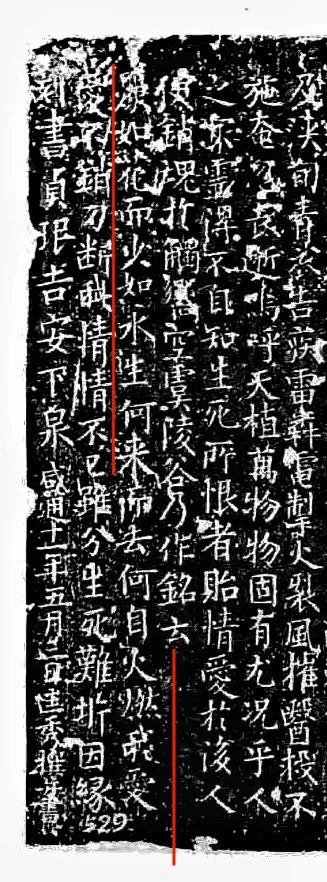 及浹旬青衣告疾雷犇電掣火裂風摧醫投不
施奄忽長逝嗚呼天植萬物物固有尤況乎人
之最靈得不自知生死所恨者貽情愛於後人
便銷魂於觸嚮空虞陵谷乃作銘云
麗如花而少如水生何来而去何自火燃我愛
愛不銷刀斷我情情不已雖分生死難坼因緣
刻書貞珉吉安下泉咸通十一年五月日匡秀撰并書
529